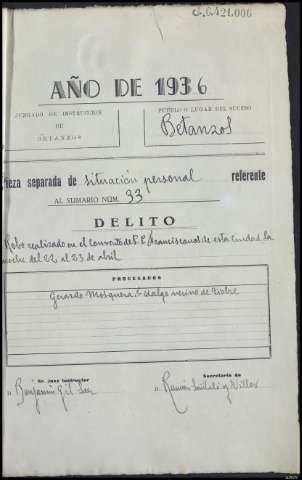 C-6.421.006
AÑO DE 1936
JUZGADO DE INSTRUCCION
DE
BETANZOS
PUEBLO O LUGAR DEL SUCESO
Betanzos
Pieza separada de situación personal referente
AL SUMARIO NÚM. 33
DELITO
Robo realizado en el Convento de P.P. Franciscanos de esta Ciudad la
noche del 22 al 23 de abril
PROCESADOS
Gerardo Mosquera Hidalgo vecino de Tiobre
Sr. Juez Instructor
Secretario de
D. Benjamín Gil Sáez
D. Ramón y Villar